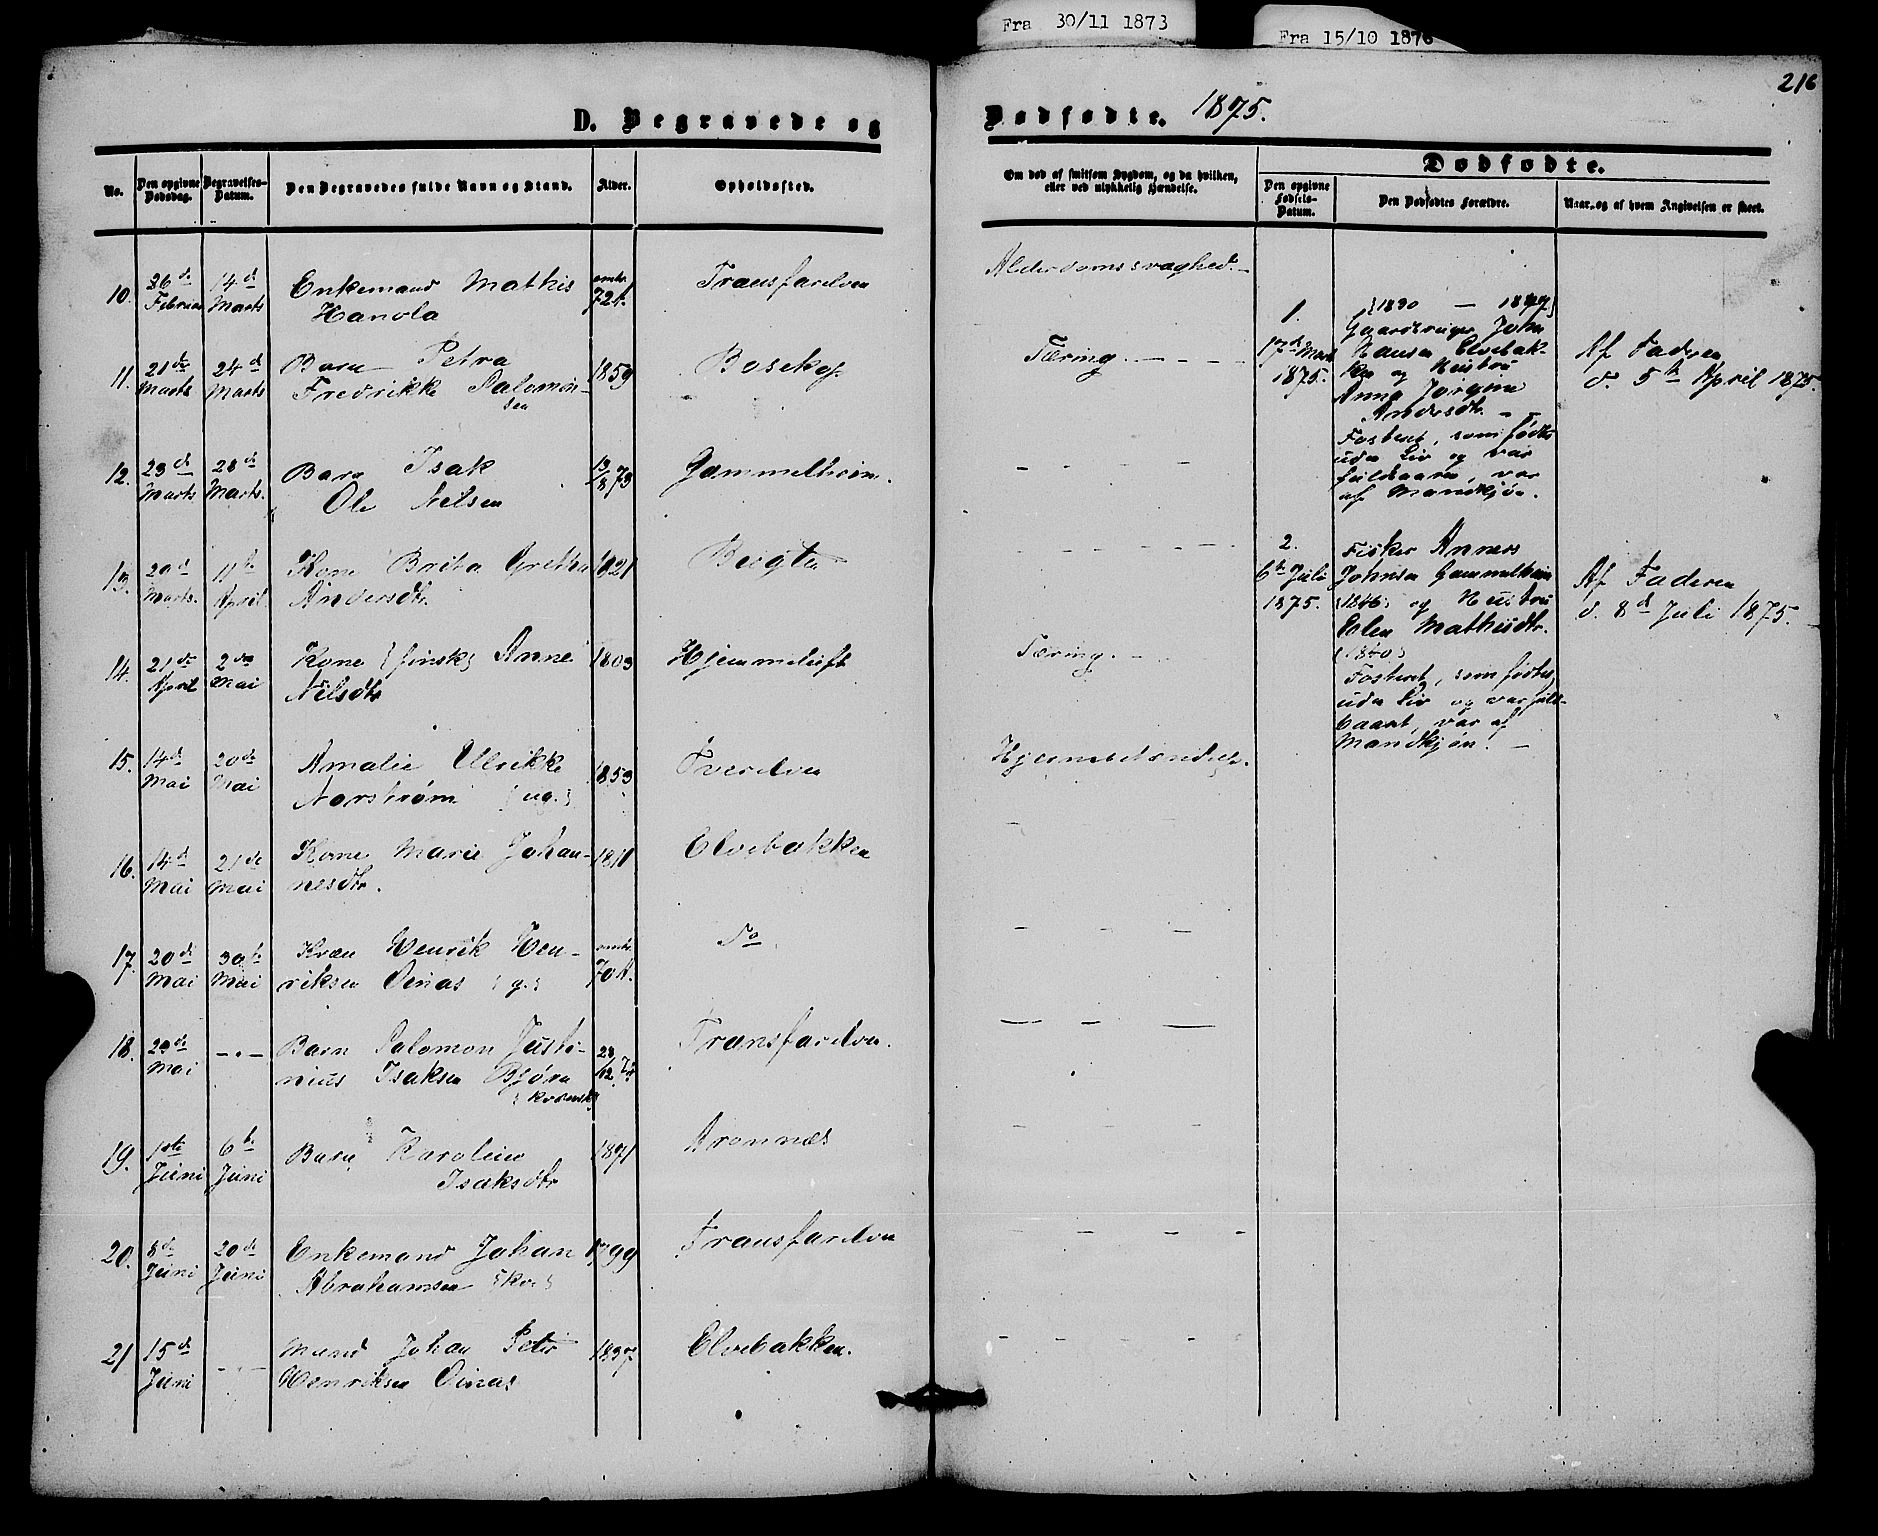 Fra 30/11 1873
Fra 15/10 1876
216
D. Begravede og
Dødfødte. 1875.
No.
Den opgivne Dødsdag.
Begravelses-Datum.
Den Begravedes fulde Navn og Stand.
Alder.
Opholdssted.
Om død af smitsom Sygdom, og da hvilken,
eller ved ulykkelig Hændelse.
Dødfødte.
Den opgivne Fødsels-Datum.
Den Dødfødtes Forældre.
Naar, og af hvem Angivelsen er skeet.
10. 26de Februar 14de Marts Enkemand Mathis omtr. 72 A. Transfarelven Alderdomssvaghed.
Hanola
11. 21de Marts 24de Marts Barn Petra 1859 Bosekop Tæring.
Fredrikke Salomon-
sen
12. 23de Marts 28de Marts. Barn Isak 13/8 73 Gammelheim.
Ole Nilsen
13. 29de Marts. 11te April Kone Brita Gretha 1821 Beigta
Andersdtr.
14. 21de April 2den Mai Kone (finsk) Anne 1803 Hjemmeluft Tæring.
Nilsdtr
15. 14de Mai 20de Mai Amalie Ulrikke 1853 Tverelven Hjernebetændelse.
Norstrøm (ug.)
16. 14de Mai 21de Mai Kone Marie Johan- 1811 Elvebakken
nesdtr.
17. 20de Mai 30te Mai Kvæn Henrik Hen- omtr. 70 A. Do
riksen Oinas (g.)
18. 29de Mai -"- Barn Salomon Justi- 28/12 74 Transfarelven.
nius Isaksen Bjørn
(kvænsk)
19. 1ste Juni 6te Juni Barn Karoline 1871 Aronnæs
Isaksdtr
20. 8de Juni 20de Juni Enkemand Johan 1799 Transfarelven
Abrahamsen (kv.)
21 15de Juni -"- Mand Johan Peter 1837 Elvebakken.
Henriksen Oinas
1.
17de Marts
1875.
(1830 — 1849)
Gaardbruger John
Hansen Elvebak-
ken og Hustru
Anna Jørgine
Andersdtr. —
Fosteret, som fødtes
uden Liv og var
fuldbaaren, var
af Mandkjøn.
Af Faderen
d. 5te April 1875.
2.
6te Juli
1875.
Fisker Anners
Johnsen Gammelheim
(1846) og Hustru
Elen Mathisdtr.
(1840)
Fosteret, som fødtes
uden Liv og var fuld-
baaret, var af
Mandkjøn. —
Af Faderen
d. 8de Juli 1875.